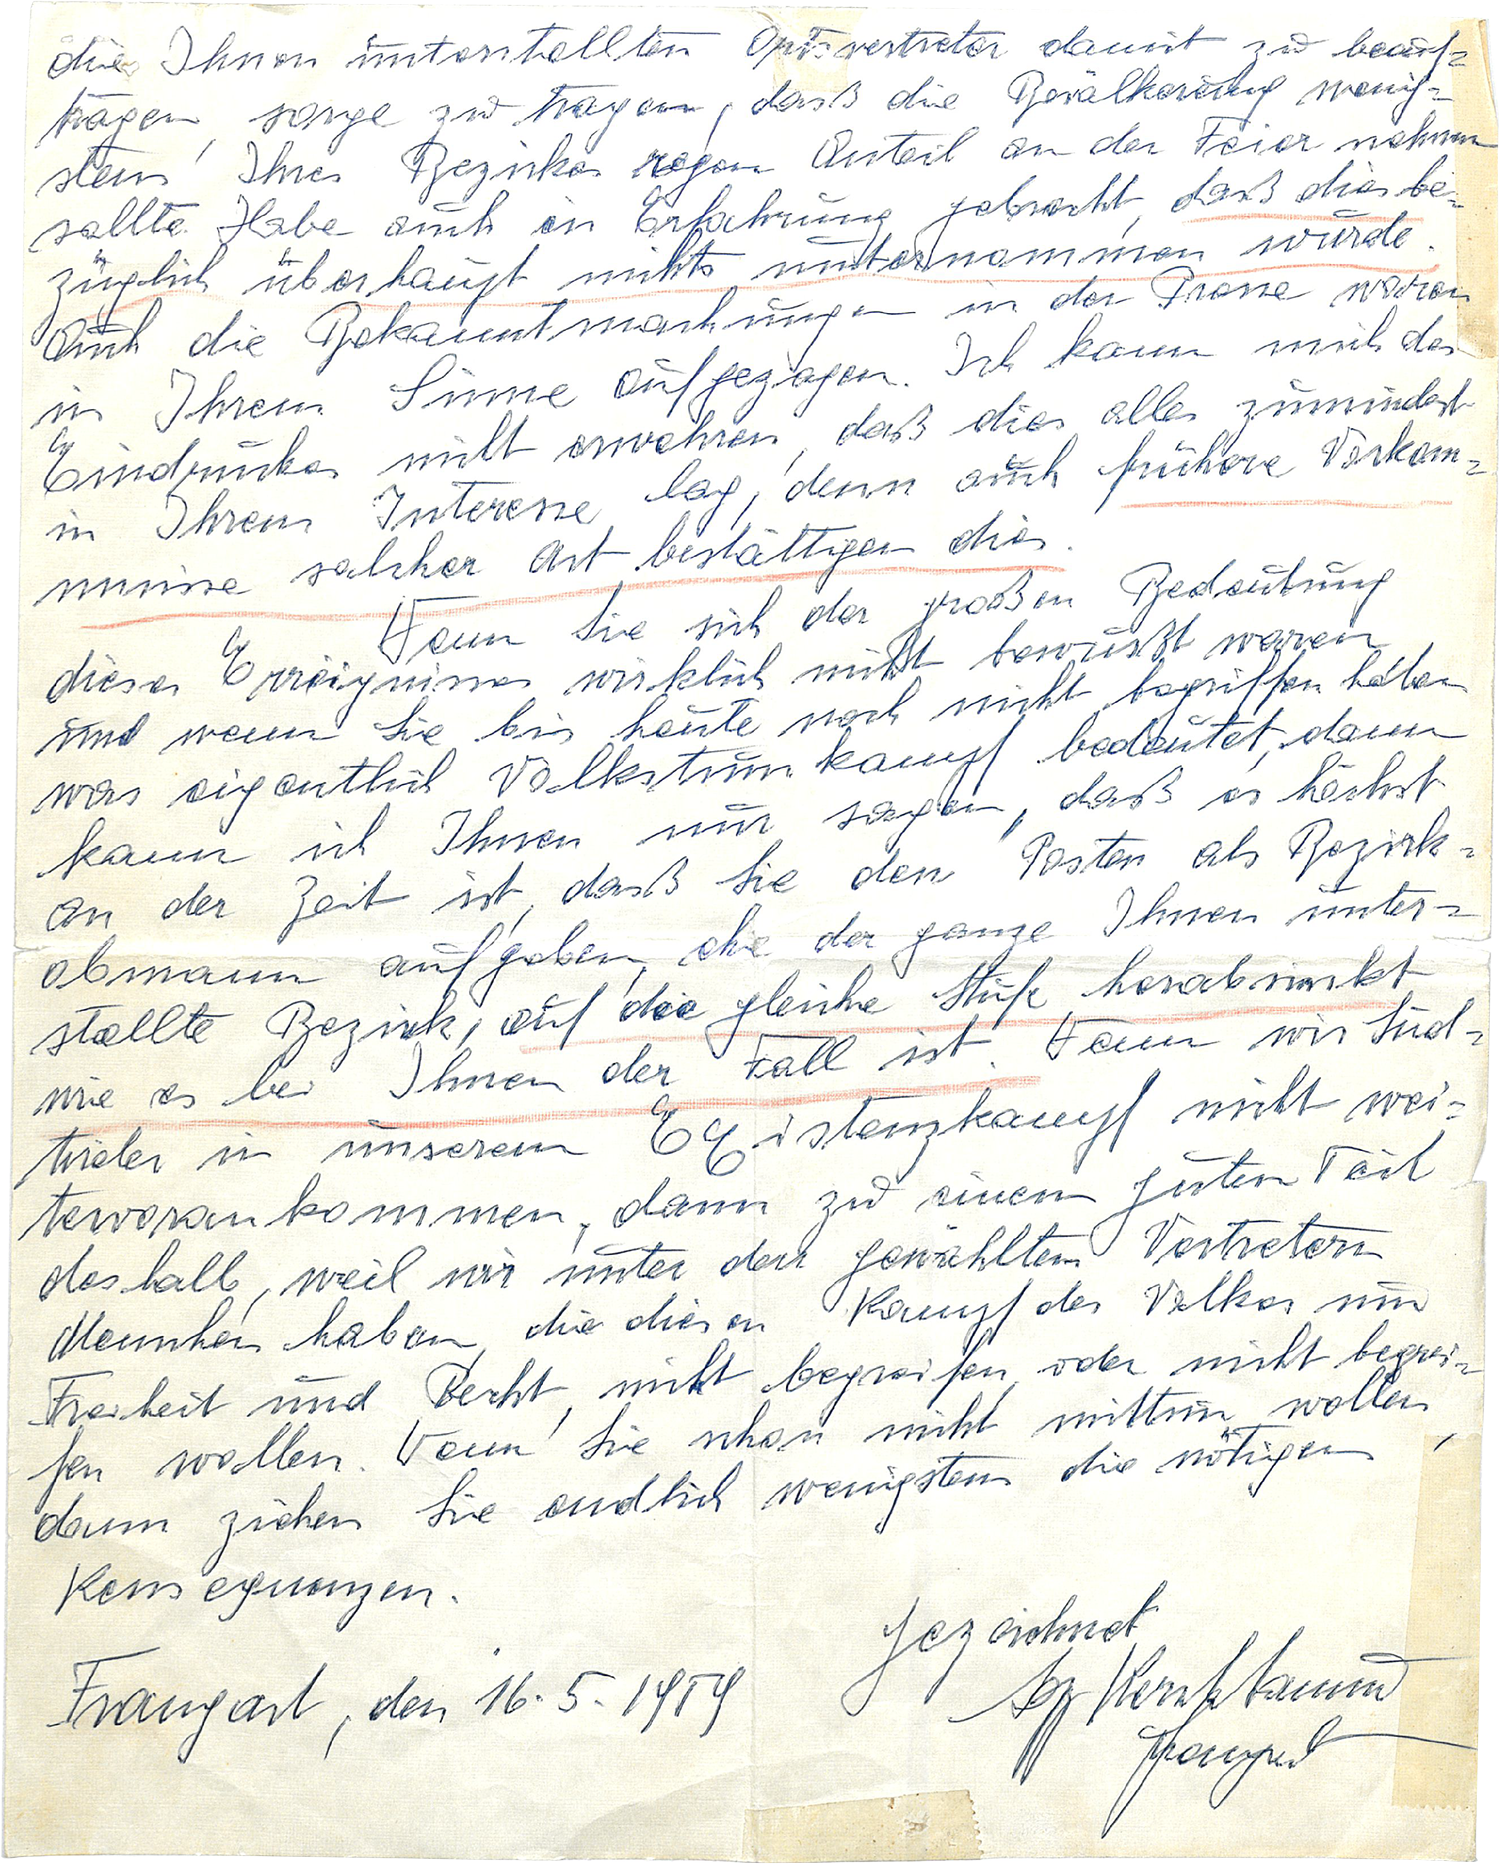 die Ihnen unterstellten Ortsvertreter damit zu beauf-
tragen, sorge zu tragen, daß die Bevölkerung wenig-
stens Ihres Bezirkes regen Anteil an der Feier nehmen
sollte. Habe auch in Erfahrung gebracht, daß dies be-
züglich überhaupt nichts unternommen wurde.
Auch die Bekanntmachungen in der Presse waren
in Ihrem Sinne aufgezogen. Ich kann mich des
Eindruckes nicht erwehren, daß dies alles zumindest
in Ihrem Interesse lag, denn auch frühere Vorkom-
mnisse solcher Art bestättigen dies.
Wenn Sie sich der großen Bedeutung
dieses Erreignisses wirklich nicht bewußt waren
und wenn Sie bis heute noch nicht begriffen haben
was eigentlich Volkstumkampf bedeutet, dann
kann ich Ihnen nur sagen, daß es höchst
an der Zeit ist, daß Sie den Posten als Bezirk-
obmann aufgeben, ehe der ganze Ihnen unter-
stellte Bezirk, auf die gleiche Stufe herabsinkt
wie es bei Ihnen der Fall ist. Wenn wir Süd-
tiroler in unserem Existenzkampf nicht wei-
tervorankommen, dann zu einem guten Teil
deshalb, weil wir unter den gewählten Vertretern
Menschen haben, die diesen Kampf des Volkes um
Freiheit und Recht, nicht begreifen oder nicht begrei-
fen wollen. Wenn Sie schon nicht mittun wollen,
dann ziehen Sie endlich wenigstens die nötigen
Konsequenzen.
gezeichnet
Frangart, den 16.5.1959
Sepp Kerschbaumer
Frangart